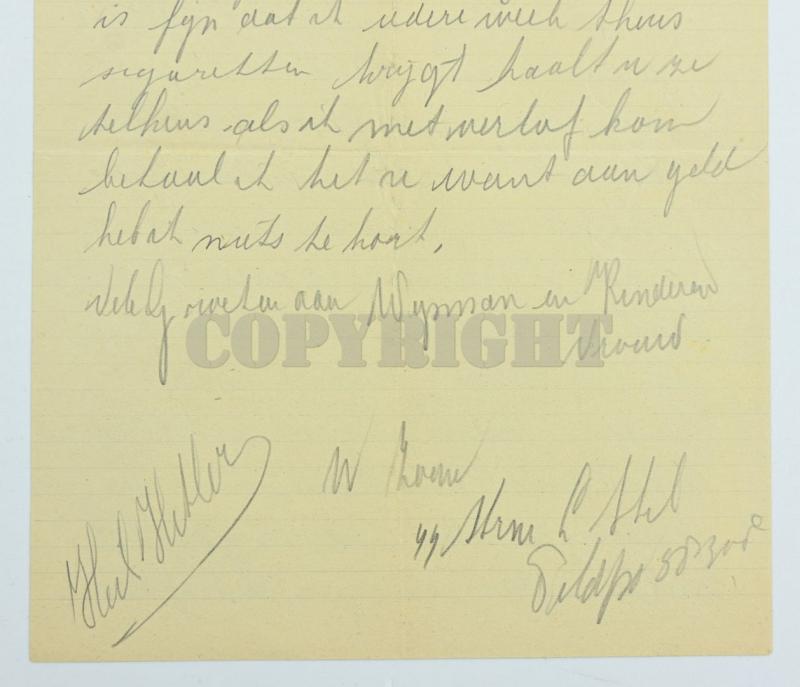 is fijn dat ik iedere week thuis
sigaretten krijgt haalt u ze
telkens als ik met verlof kom
betaal ik het u want aan geld
heb ik niets te kort,
Vele Groeten aan Wijnman en Kinderen
Vrouw
COPYRIGHT
Heil Hitler
W Zoon
SS Strm L
Feldpo